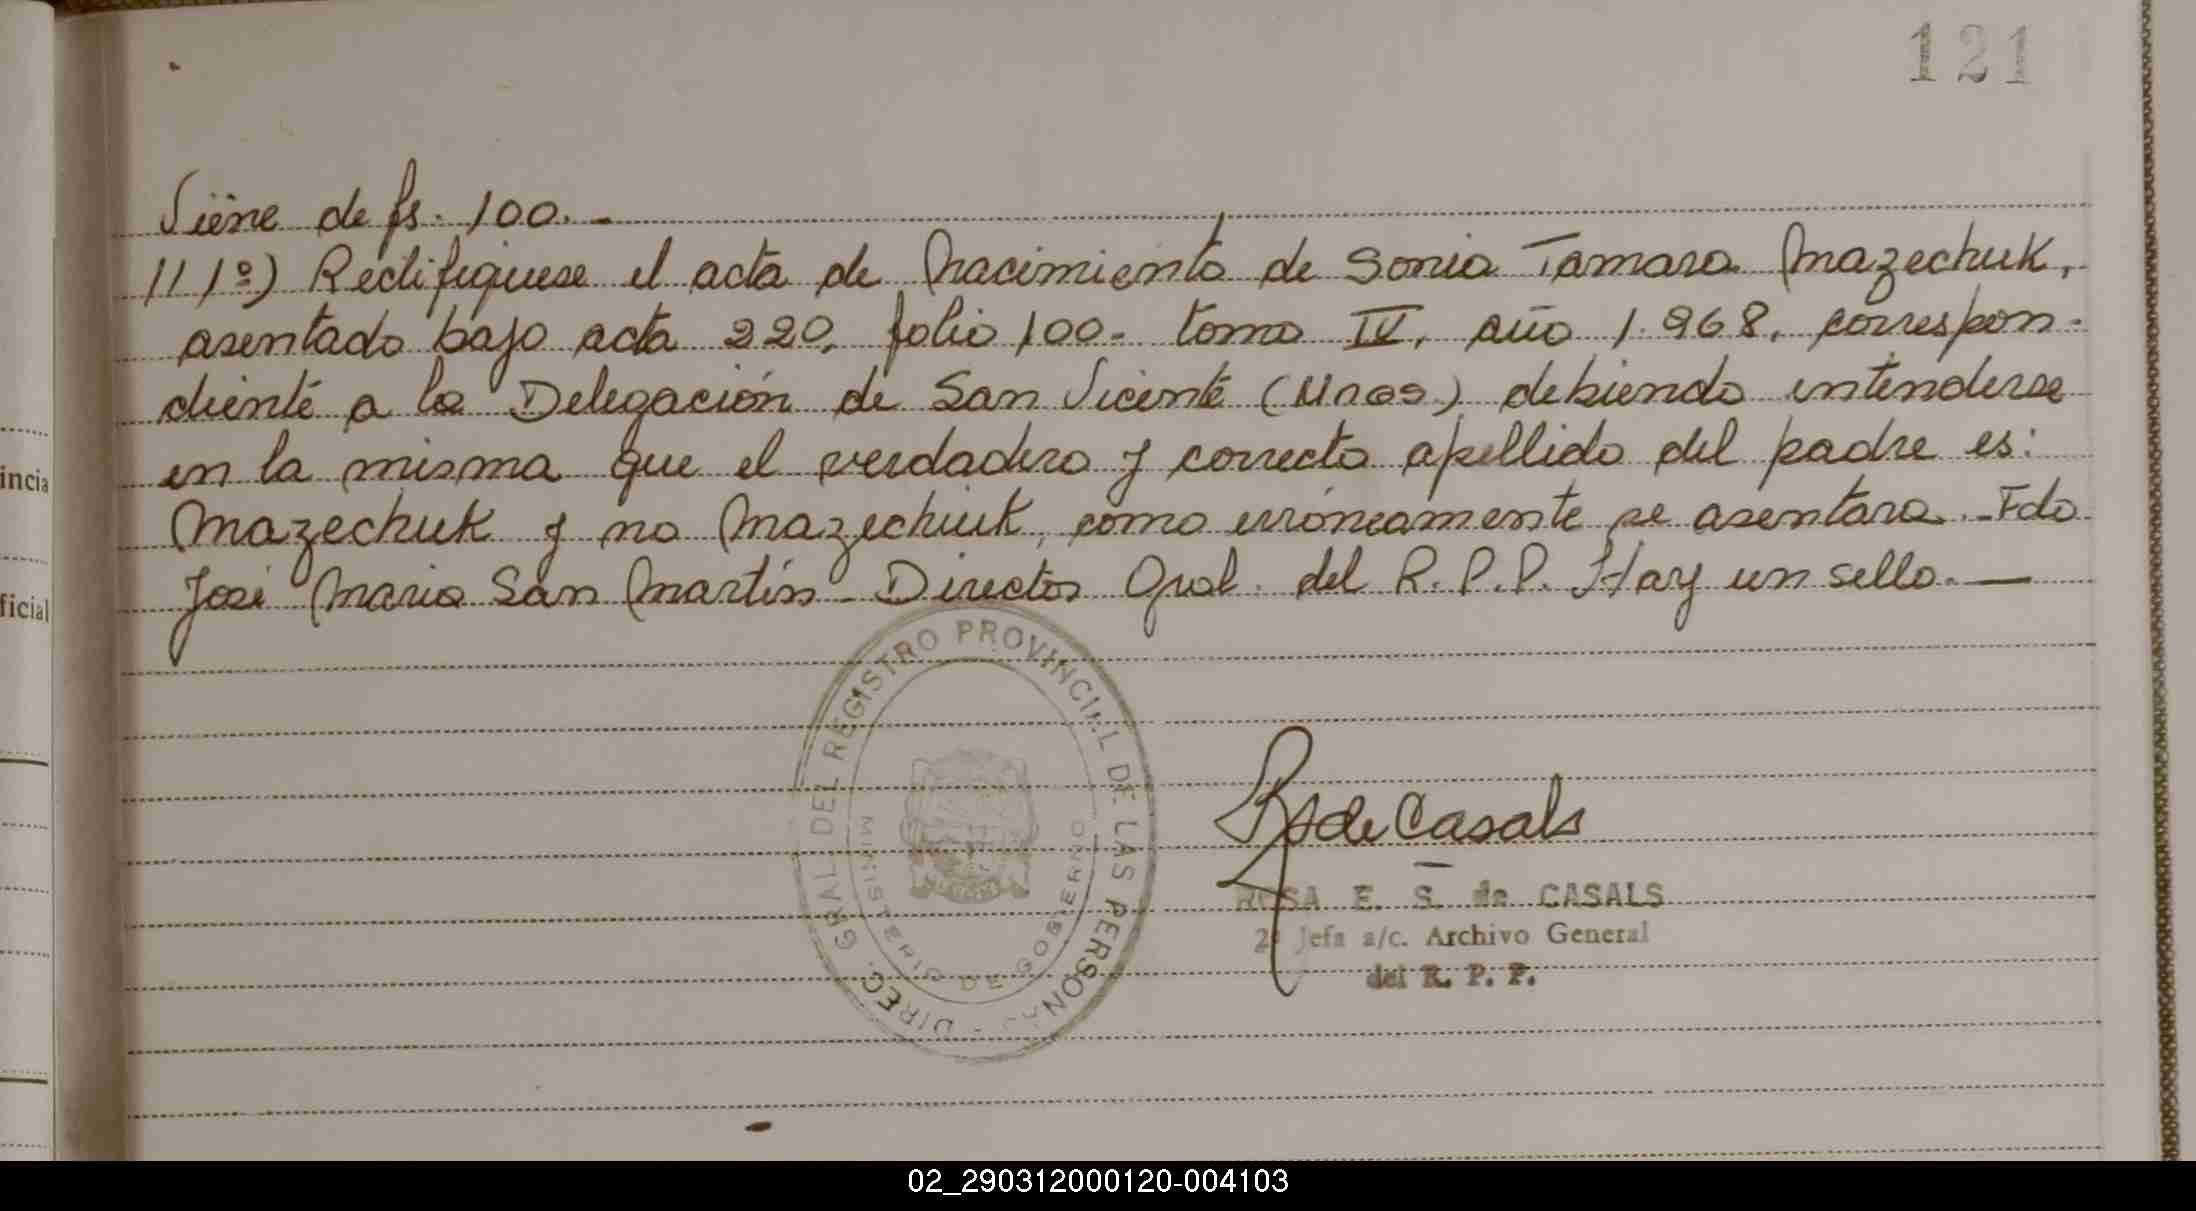 121
Viene de fs. 100.-
// 1º) Rectifiquese el acta de nacimiento de Sonia Tamara Mazechuk,
asentado bajo acta 220, folio 100- tomo IV, año 1.968, correspon-
diente a la Delegación de San Vicente (Mnes) debiendo entenderse
en la misma que el verdadero y correcto apellido del padre es:
Mazechuk y no Mazechiuk, como erróneamente se asentara.- Fdo
José Maria San Martín - Director Gral. del R.P.P. Hay un sello.—
DIREC. GRAL DEL REGISTRO PROVINCIAL DE LAS PERSONAS
MINISTERIO DE GOBIERNO
de Casals
ROSA E. S. de CASALS
2ª Jefa a/c. Archivo General
del R. P. P.
incia
ficial
02_290312000120-004103